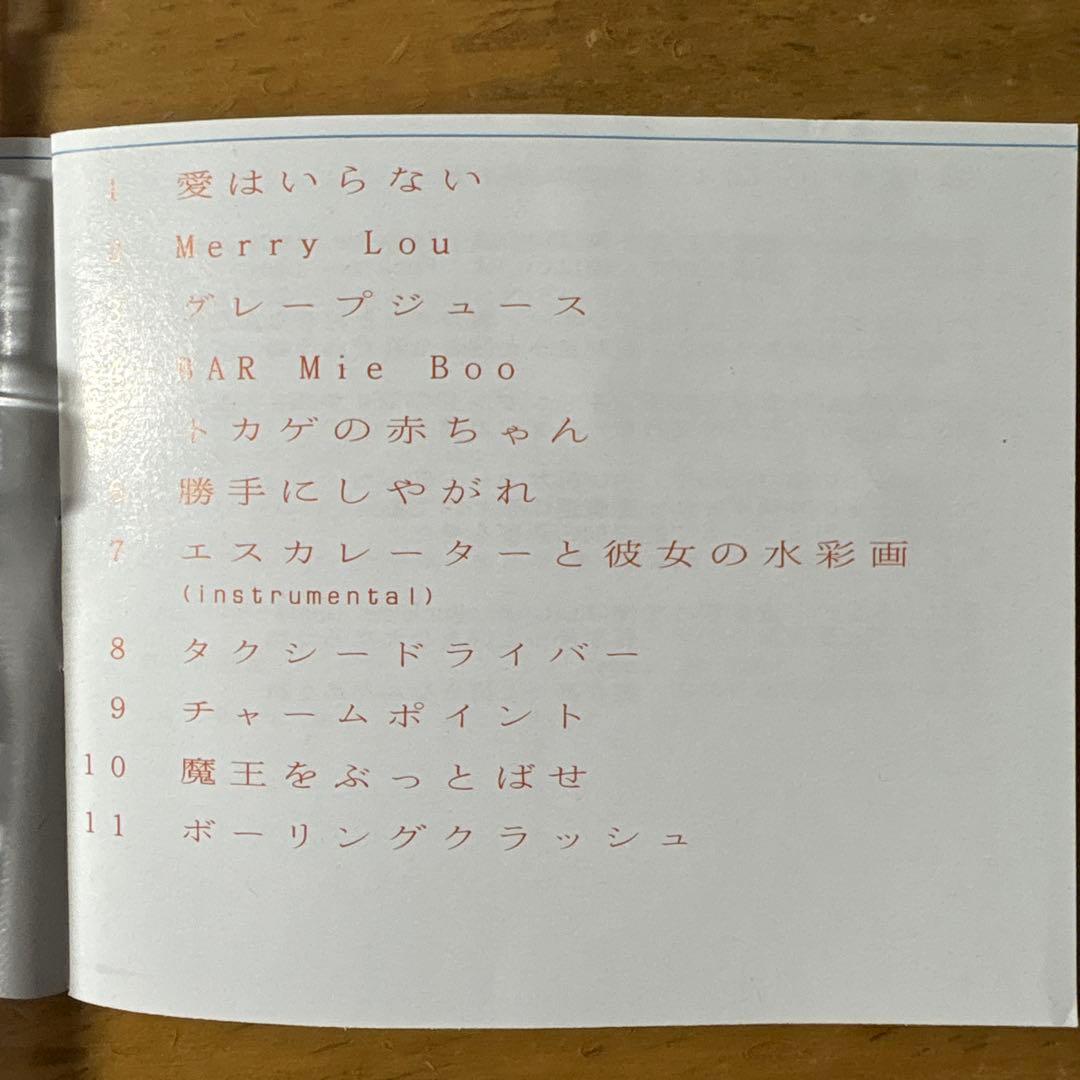 1 愛はいらない
2 Merry Lou
3 グレープジュース
BAR Mie Boo
トカゲの赤ちゃん
6 勝手にしやがれ
7 エスカレーターと彼女の水彩画
(instrumental)
8 タクシードライバー
9 チャームポイント
10 魔王をぶっとばせ
11 ボーリングクラッシュ